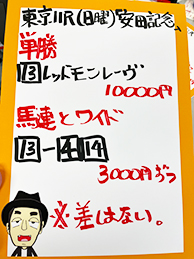 東京11R(日曜)安田記念
単勝
13レッドモンレーヴ
10000円
馬連とワイド
13-4 14
3000円ずつ
※差はない。